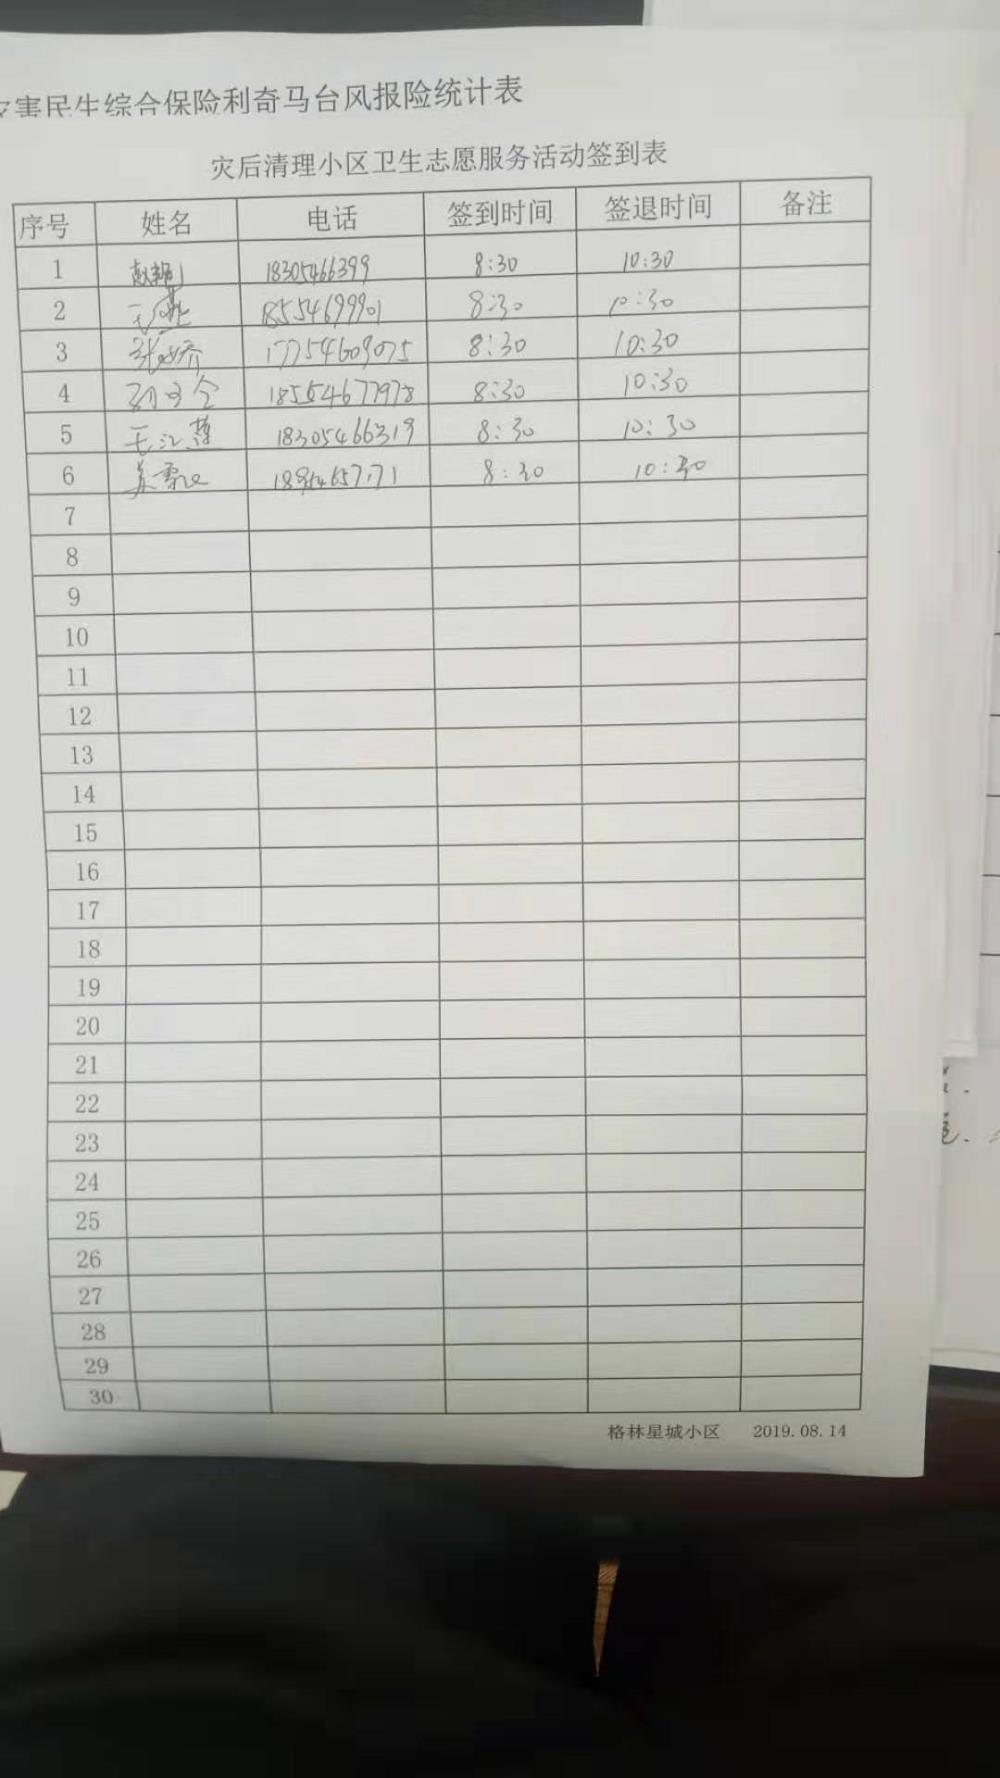 害民生综合保险利奇马台风报险统计表
灾后清理小区卫生志愿服务活动签到表
序号 姓名 电话 签到时间 签退时间 备注
1 18305466399 8:30 10:30
2 18554699901 8:30 10:30
3 张娇 17754609075 8:30 10:30
4 18554677978 8:30 10:30
5 王汇慧 18305466319 8:30 10:30
6 8:30 10:30
7
8
9
10
11
12
13
14
15
16
17
18
19
20
21
22
23
24
25
26
27
28
29
30
格林星城小区 2019.08.14